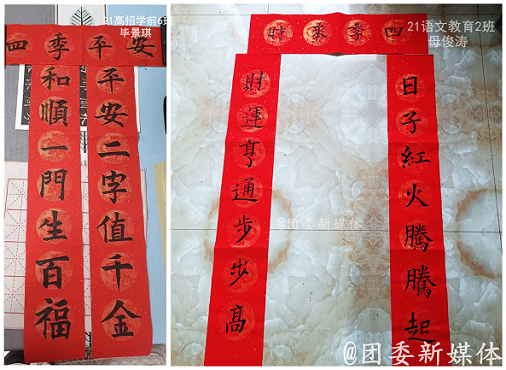 21高招学前6班
毕景琪
四季平安
平安二字值千金
和順一門生百福
21语文教育2班
母俊涛
四季來財
日子紅火騰騰起
財運亨通步步高
@团委新媒体
@团委新媒体